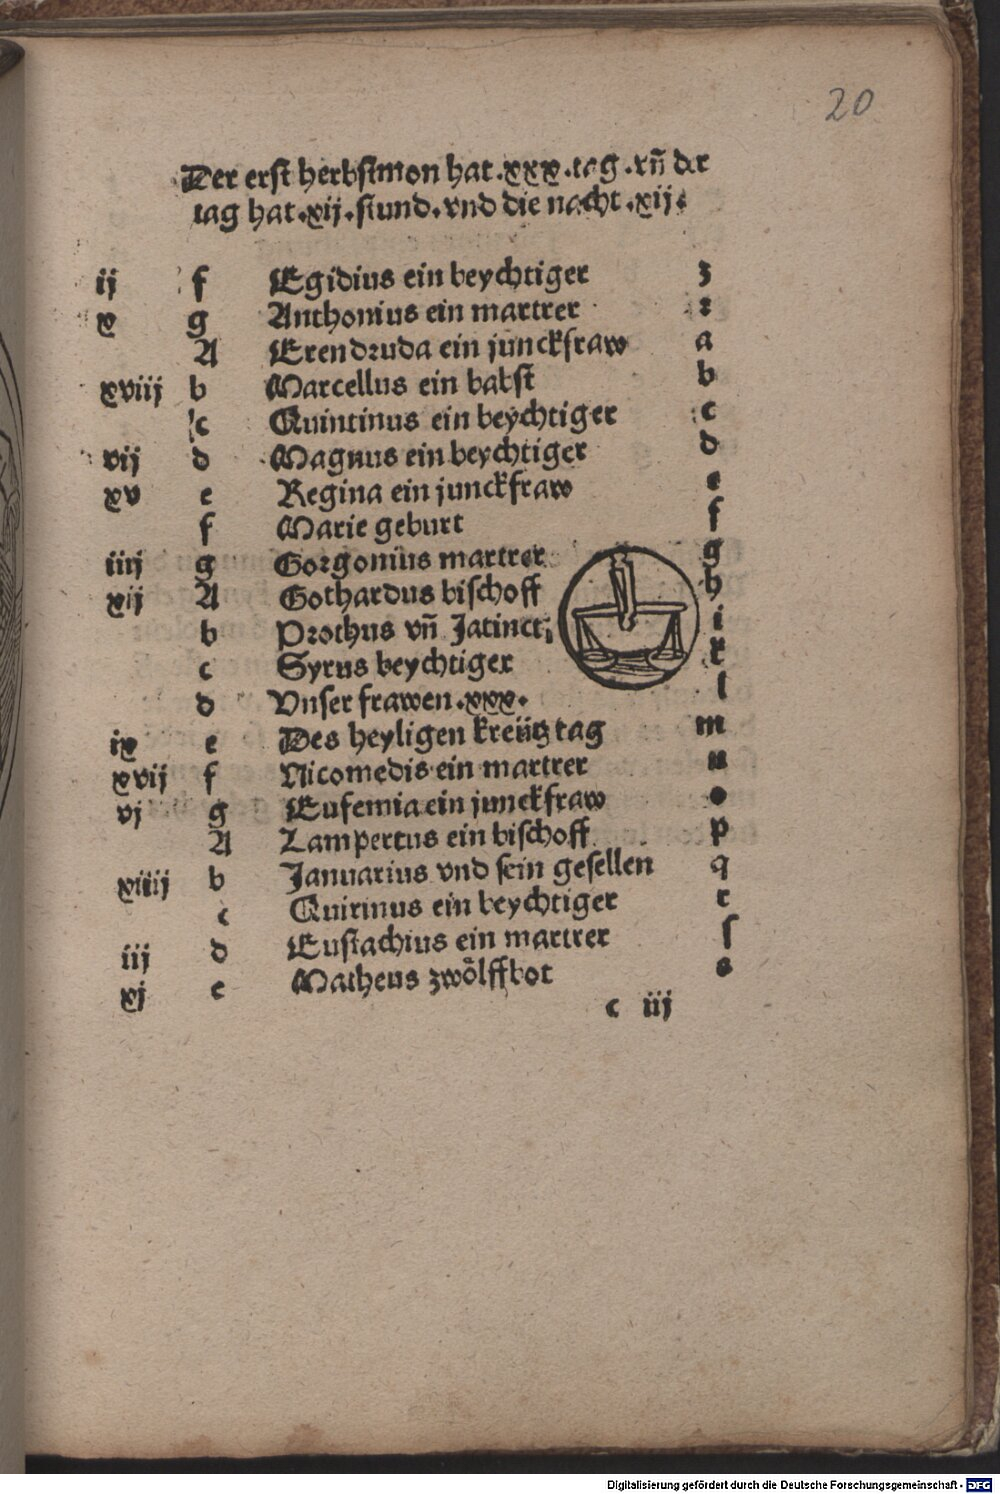 20
Der erst herbstmon hat .xxx. tag . vn̄ der
tag hat .xij. stund. vnd die nacht .xij.
ij f Egidius ein beychtiger z
x g Anthonius ein martrer z
A Erendruda ein junckfraw a
xviij b Marcellus ein babst b
c Quintinus ein beychtiger c
vij d Magnus ein beychtiger d
xv e Regina ein junckfraw e
f Marie geburt f
iiij g Gorgonius martrer g
xij A Gothardus bischoff h
b Prothus vn̄ Jatincti i
c Syrus beychtiger k
d Vnser frawen .xxx. l
ix e Des heyligen kreütz tag m
xvij f Nicomedis ein martrer n
vj g Eufemia ein junckfraw o
A Lampertus ein bischoff p
xiiij b Januarius vnd sein gesellen q
c Quirinus ein beychtiger r
iij d Eustachius ein martrer ſ
xj e Matheus zwölffbot s
c iij
Digitalisierung gefördert durch die Deutsche Forschungsgemeinschaft - DFG